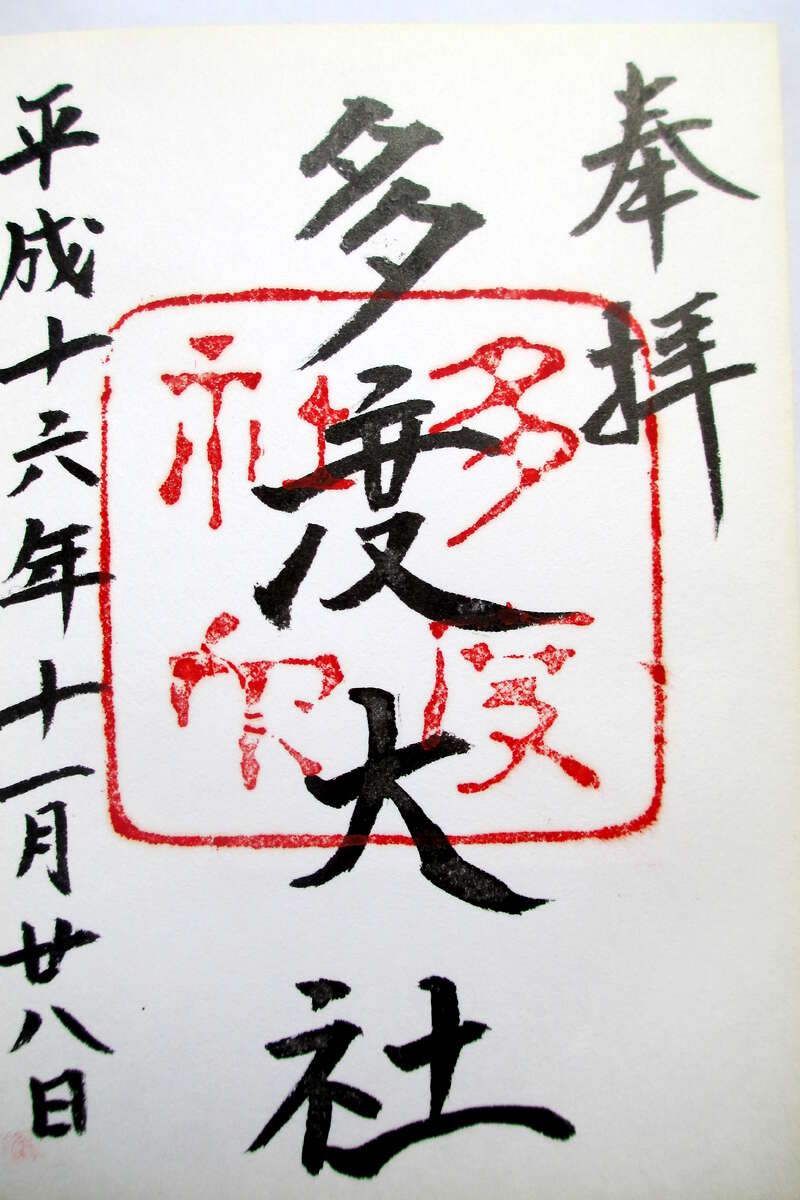 奉拝
多度大社
多度
社印
平成十六年十一月廿八日